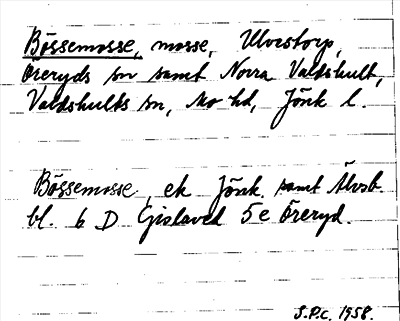 Bössemosse, mosse, Ulvestorp,
Öreryds sn samt Norra Valdshult,
Valdshults sn, Mo hd, Jönk l.
Bössemosse, ek Jönk samt Älvsb.
bl. 6 D Gislaved 5e Öreryd.
S.P.C. 1958.